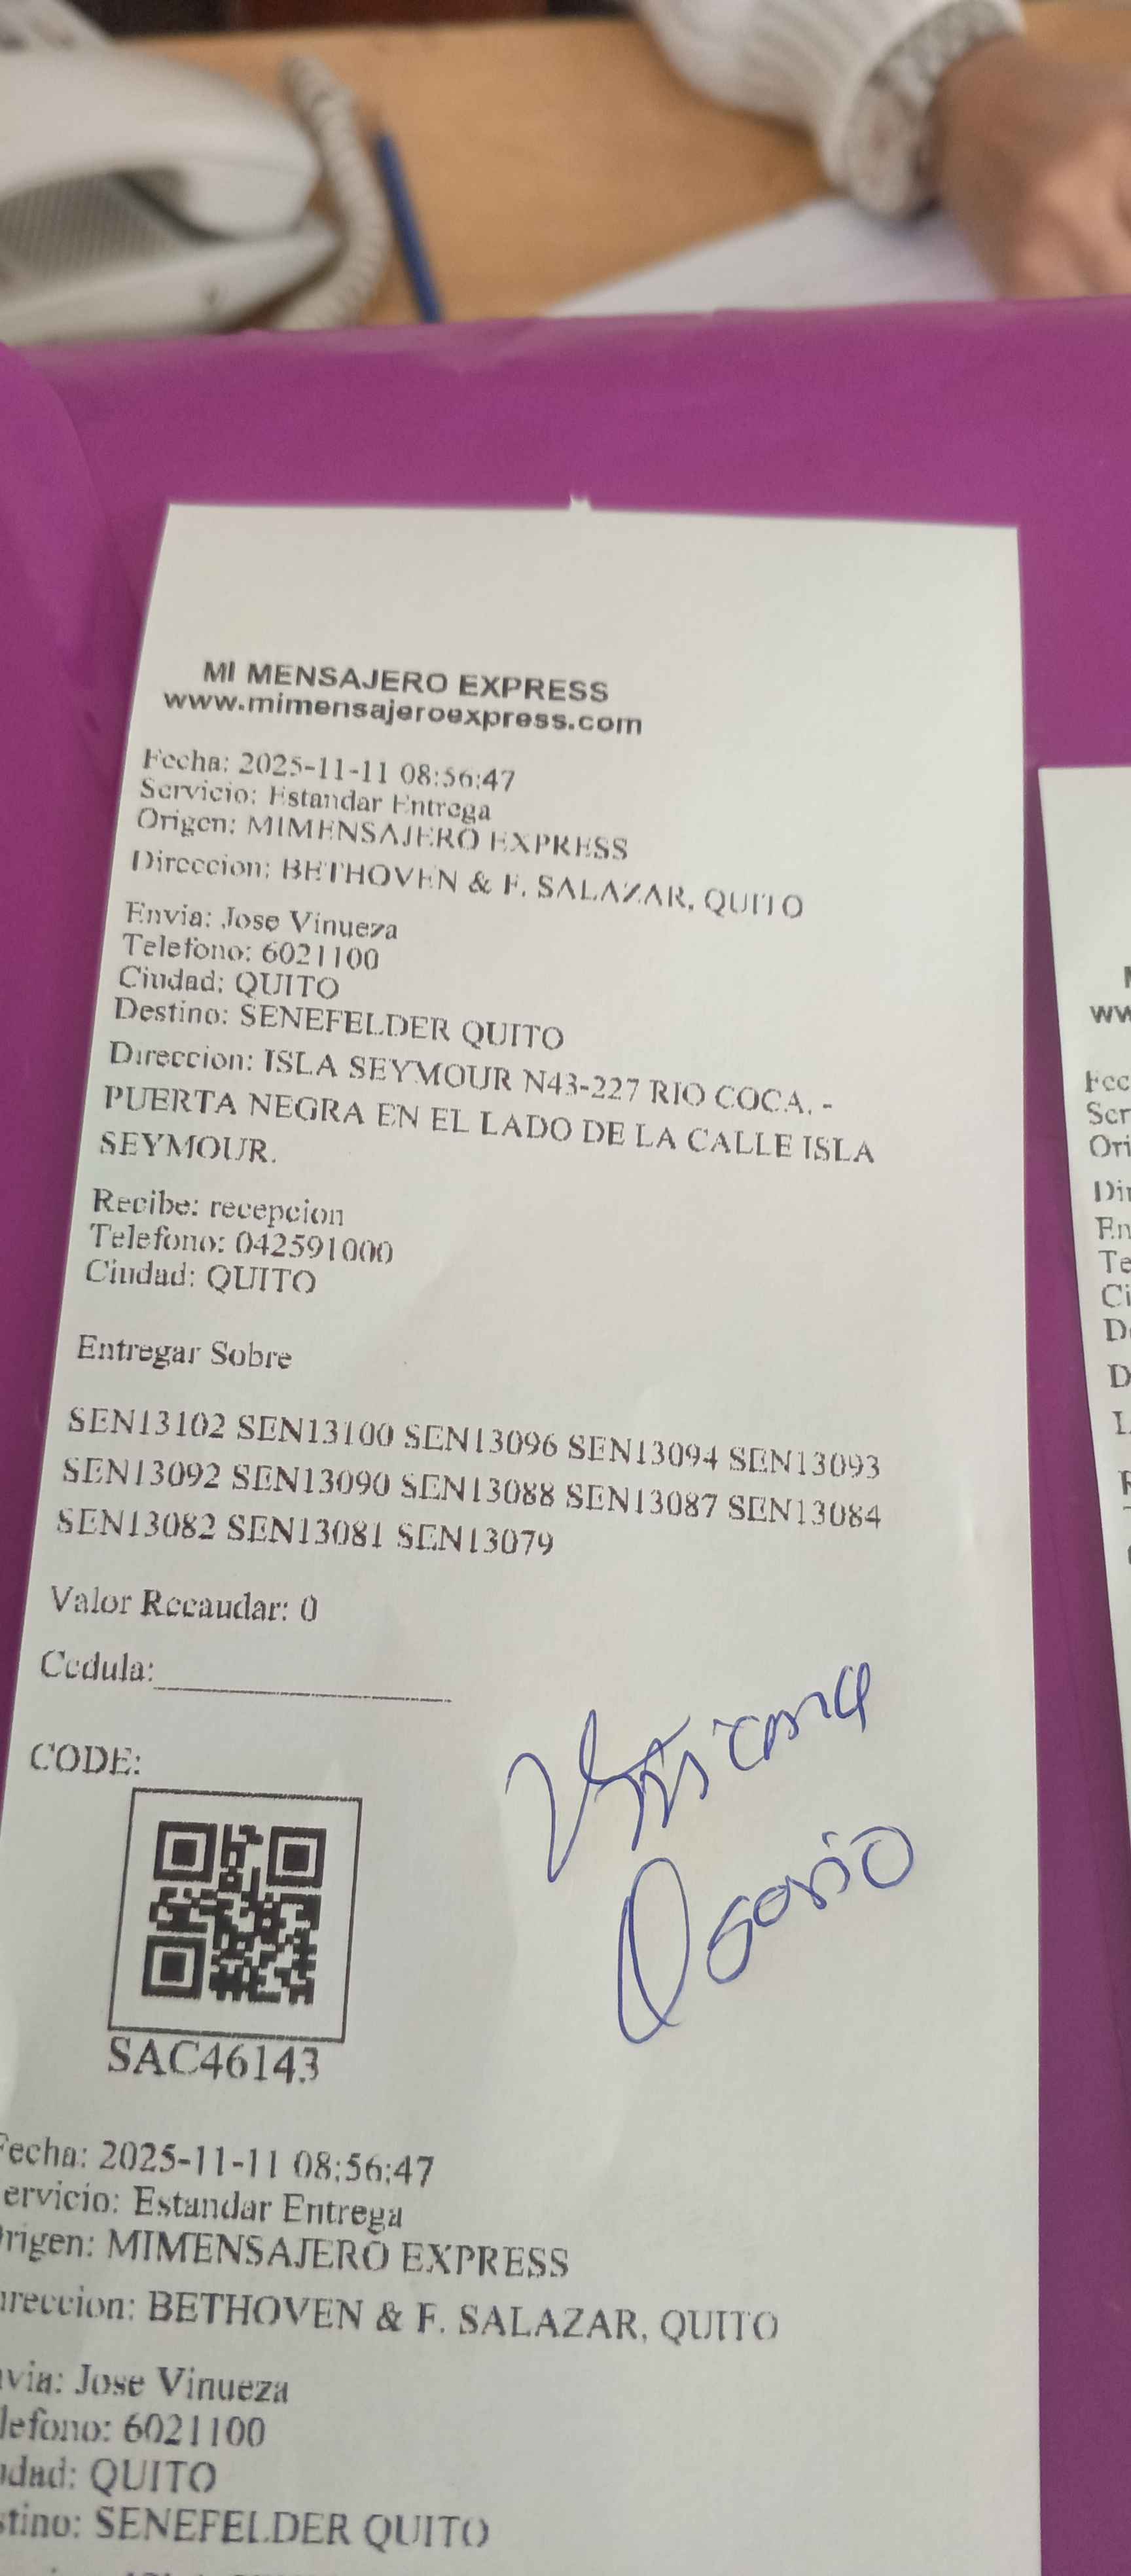 MI MENSAJERO EXPRESS
www.mimensajeroexpress.com
Fecha: 2025-11-11 08:56:47
Servicio: Estandar Entrega
Origen: MIMENSAJERO EXPRESS
Direccion: BETHOVEN & F. SALAZAR, QUITO
Envia: Jose Vinueza
Telefono: 6021100
Ciudad: QUITO
Destino: SENEFELDER QUITO
Direccion: ISLA SEYMOUR N43-227 RIO COCA. -
PUERTA NEGRA EN EL LADO DE LA CALLE ISLA
SEYMOUR.
Recibe: recepcion
Telefono: 042591000
Ciudad: QUITO
Entregar Sobre
SEN13102 SEN13100 SEN13096 SEN13094 SEN13093
SEN13092 SEN13090 SEN13088 SEN13087 SEN13084
SEN13082 SEN13081 SEN13079
Valor Recaudar: 0
Cedula:
CODE:
Osorio
SAC46143
Fecha: 2025-11-11 08:56:47
ervicio: Estandar Entrega
rigen: MIMENSAJERO EXPRESS
reccion: BETHOVEN & F. SALAZAR, QUITO
via: Jose Vinueza
lefono: 6021100
dad: QUITO
stino: SENEFELDER QUITO
ww
Fec
Ser
Ori
Dir
En
Te
Ci
D